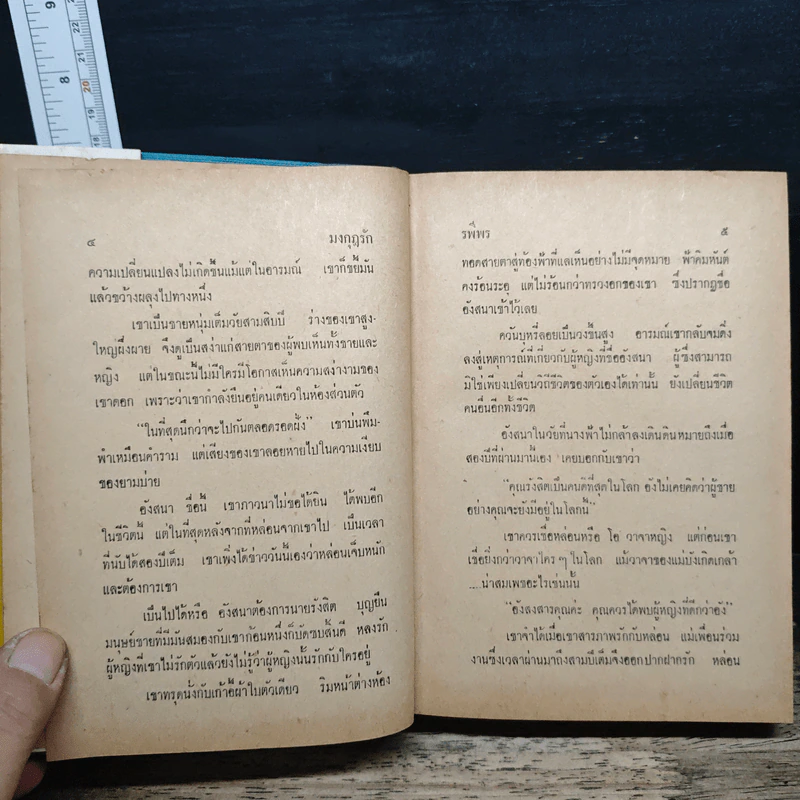 ๔ มงกุฎรัก
ความเปลี่ยนแปลงไม่เกิดขึ้นแม้แต่ในอารมณ์ เขาก็ขยี้มัน
แล้วขว้างผลุงไปทางหนึ่ง
เขาเป็นชายหนุ่มเต็มวัยสามสิบปี ร่างของเขาสูง-
ใหญ่ผึ่งผาย จึงดูเป็นสง่าแก่สายตาของผู้พบเห็นทั้งชายและ
หญิง แต่ในขณะนี้ไม่มีใครมีโอกาสเห็นความสง่างามของ
เขาดอก เพราะว่าเขากำลังยืนอยู่คนเดียวในห้องส่วนตัว
"ในที่สุดนึกว่าจะไปกันตลอดรอดฝั่ง" เขาบ่นพึม-
พำเหมือนคำราม แต่เสียงของเขาลอยหายไปในความเงียบ
ของยามบ่าย
อังสนา ชื่อนี้ เขาภาวนาไม่ขอได้ยิน ได้พบอีก
ในชีวิตนี้ แต่ในที่สุดหลังจากที่หล่อนจากเขาไป เป็นเวลา
ที่นับได้สองปีเต็ม เขาเพิ่งได้ข่าววันนี้เองว่าหล่อนเจ็บหนัก
และต้องการเขา
เป็นไปได้หรือ อังสนาต้องการนายรังสิต บุญยืน
มนุษย์ชายที่มีมันสมองกับเขาก้อนหนึ่งก็บัดซบสิ้นดี หลงรัก
ผู้หญิงที่เขาไม่รักตัวแล้วยังไม่รู้ว่าผู้หญิงนั้นรักกับใครอยู่
เขาทรุดนั่งกับเก้าอี้ผ้าใบตัวเดียว ริมหน้าต่างห้อง
รพีพร ๕
ทอดสายตาสู่ท้องฟ้าที่แลเห็นอย่างไม่มีจุดหมาย ฟ้าคิมหันต์
คงร้อนระอุ แต่ไม่ร้อนกว่าทรวงอกของเขา ซึ่งปรากฏชื่อ
อังสนาเข้าไว้เลย
ควันบุหรี่ลอยเป็นวงขึ้นสูง อารมณ์เขากลับจมดิ่ง
ลงสู่เหตุการณ์ที่เกี่ยวกับผู้หญิงที่ชื่ออังสนา ผู้ซึ่งสามารถ
มิใช่เพียงเปลี่ยนวิถีชีวิตของตัวเองได้เท่านั้น ยังเปลี่ยนชีวิต
คนอื่นอีกทั้งชีวิต
อังสนาในวัยที่นางฟ้าไม่กล้าลงเดินดินหมายถึงเมื่อ
สองปีที่ผ่านมานี้เอง เคยบอกกับเขาว่า
"คุณรังสิตเป็นคนดีที่สุดในโลก อังไม่เคยคิดว่าผู้ชาย
อย่างคุณจะยังมีอยู่ในโลกนี้"
เขาควรเชื่อหล่อนหรือ โอ วาจาหญิง แต่ก่อนเขา
เชื่อยิ่งกว่าวาจาใคร ๆ ในโลก แม้วาจาของแม่บังเกิดเกล้า
....น่าสมเพชอะไรเช่นนั้น
"อังสงสารคุณค่ะ คุณควรได้พบผู้หญิงที่ดีกว่าอัง"
เขาจำได้เมื่อเขาสารภาพรักกับหล่อน แม่เพื่อนร่วม
งานซึ่งเวลาผ่านมาถึงสามปีเต็มจึงออกปากฝากรัก หล่อน
8
22
21
20
19
18